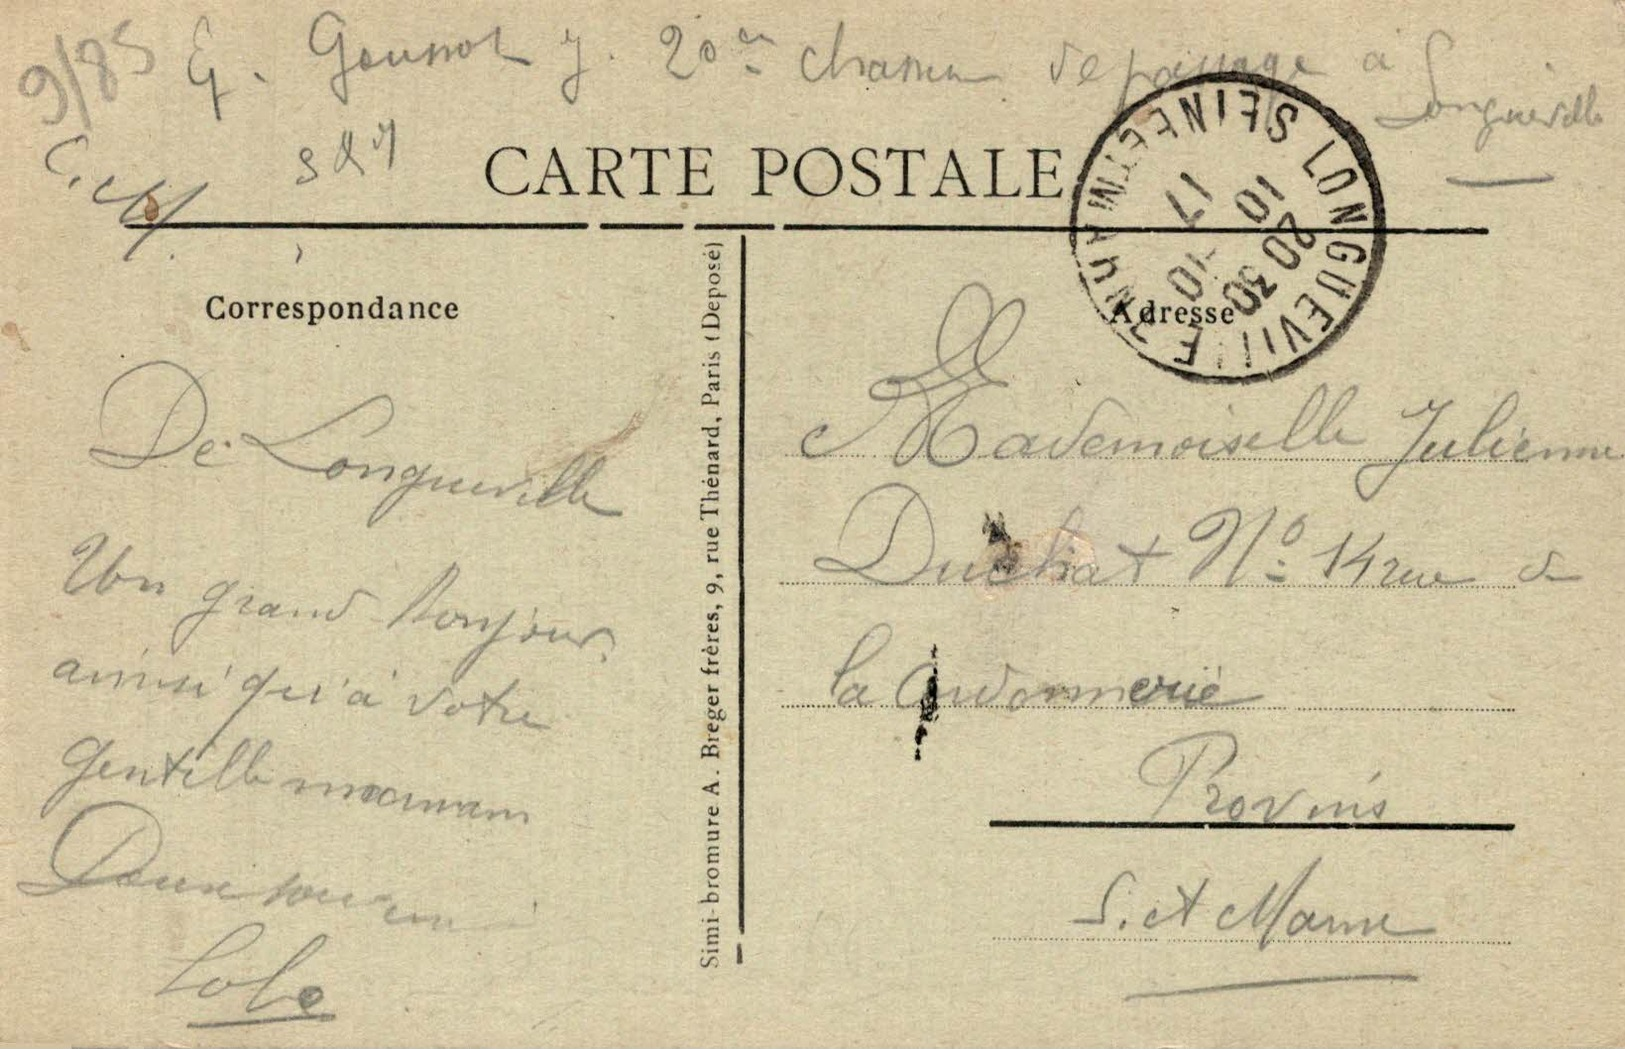 9/85
G. Goussot J. 20em chasseur de passage à
Longueville
S et M
CARTE POSTALE
SEINE ET MARNE LONGUEVILLE
20 30
10 10
17
Correspondance
Adresse
De Longueville
Un grand Bonjour
ainsi qu'à votre
gentille maman
Doux souvenir
Lolo
Simi-bromure A. Breger frères, 9, rue Thénard, Paris (Deposé)
Mademoiselle Julienne
Duchat No 14 rue de
la Cordonnerie
Provins
S. et Marne